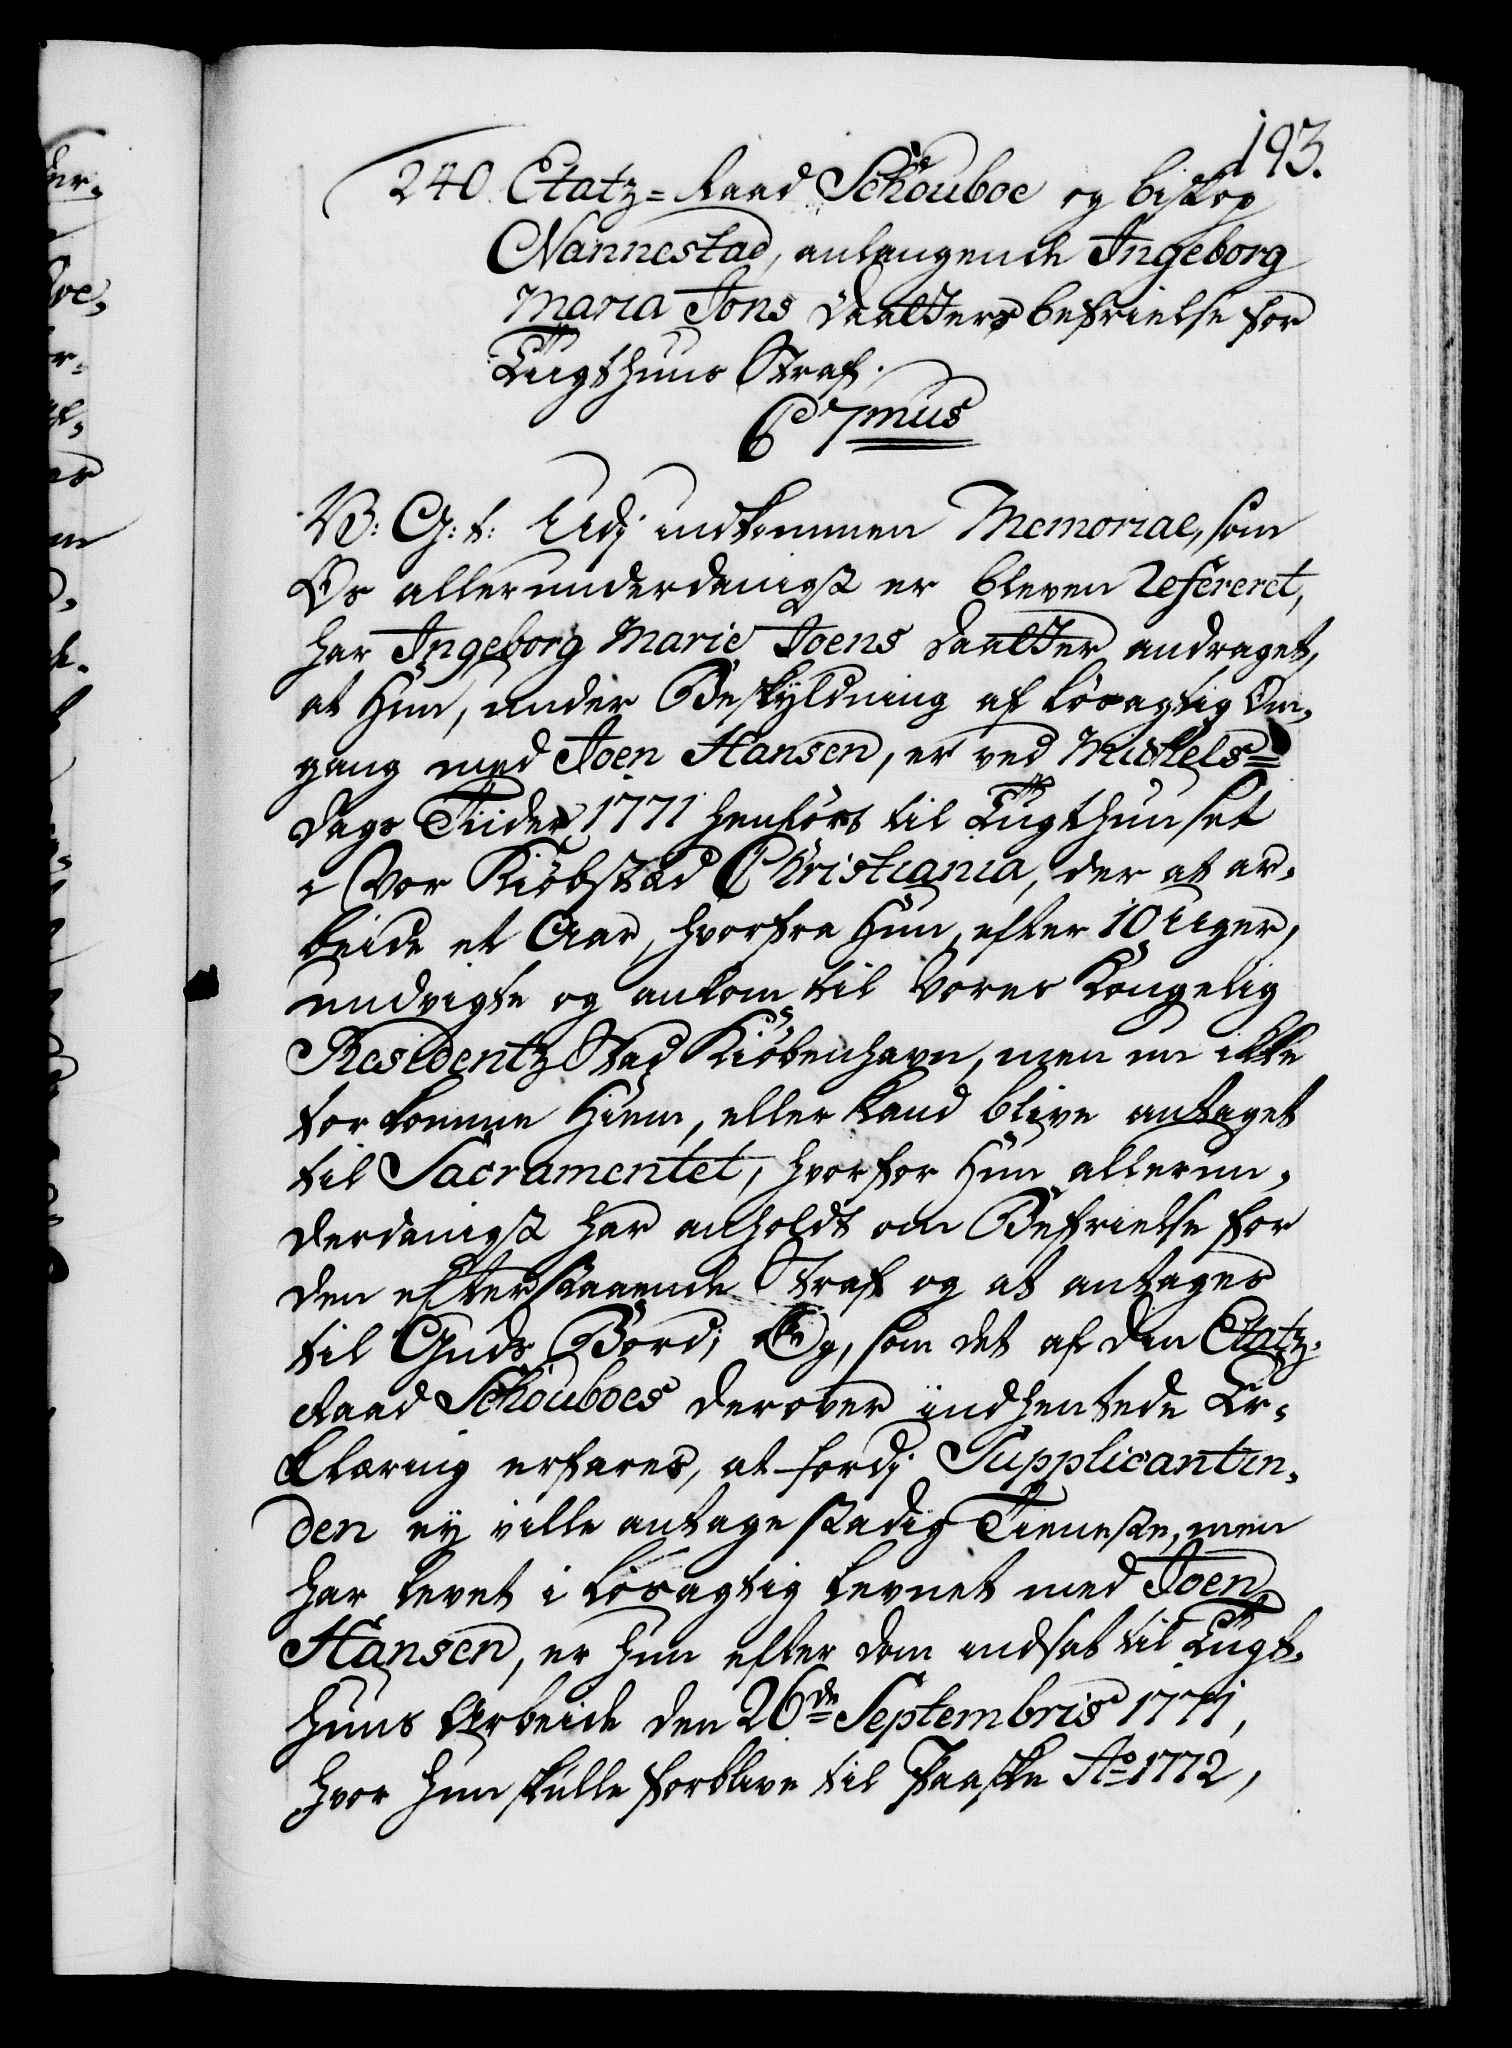 193.
240. Etatz-Raad Schouboe og biskop
Nannestad, anlangende Ingeborg
Maria Jons Daatters befrielse for
Tugthuus Straf.
C 7mus
V: G: t: Udj indkommen Memorial, som
Os allerunderdanigst er bleven refereret,
har Ingeborg Marie Joens Daatter andraget,
at Hun, under Beskyldning af løsagtig Om-
gang med Joen Hansen, er ved Mickels-
dags Tiider 1771 henført til Tugthuuset
i Vor Kiöbstæd Christiania, der at ar-
beide et Aar, hvorfra Hun, efter 10 Uger,
undvigte og ankom til Vores Kongelig
Residentz Stad Kiöbenhavn, men nu ikke
tør komme Hiem, eller kand blive antaget
til Sacramentet, hvorfor Hun allerun-
derdanigst har anholdt om Befrielse for
den efterstaaende Straf og at antages
til Guds Bord; Og, som det af den Etatz-
Raad Schouboes derover indhentede Er-
klæring erfares, at fordj Supplicantin-
den ey ville antage stadig Tieneste, men
har levet i løsagtig levnet med Joen
Hansen, er hun efter dom indsat til Tugt-
huus Arbeide den 26de Septembris 1771,
hvor hun skulle forblive til Paaske Ao 1772,